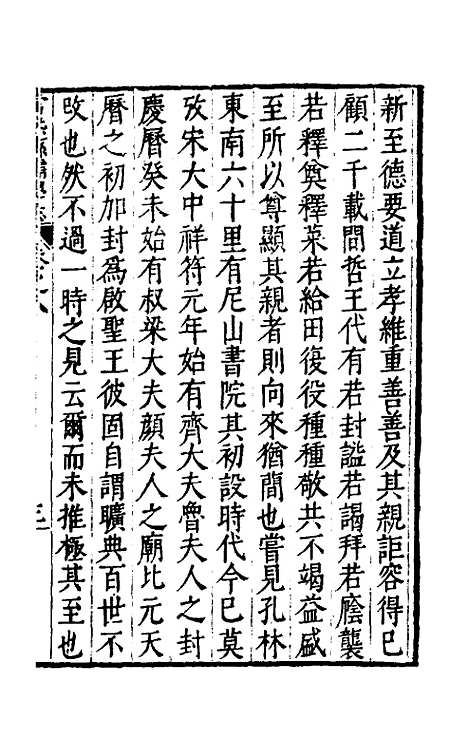 新至德要道立孝維重善善及其親詎容得已
顧二千載間哲王代有若封謚若謁拜若廕襲
若釋奠釋菜若給田復役種種敬共不竭益盛
至所以尊顯其親者則向來猶簡也嘗見孔林
東南六十里有尼山書院其初設時代今已莫
攷宋大中祥符元年始有齊大夫魯夫人之封
慶曆癸未始有叔梁大夫顔夫人之廟比元天
曆之初加封爲啟聖王彼固自謂曠典百世不
改也然不過一時之見云爾而未推極其至也